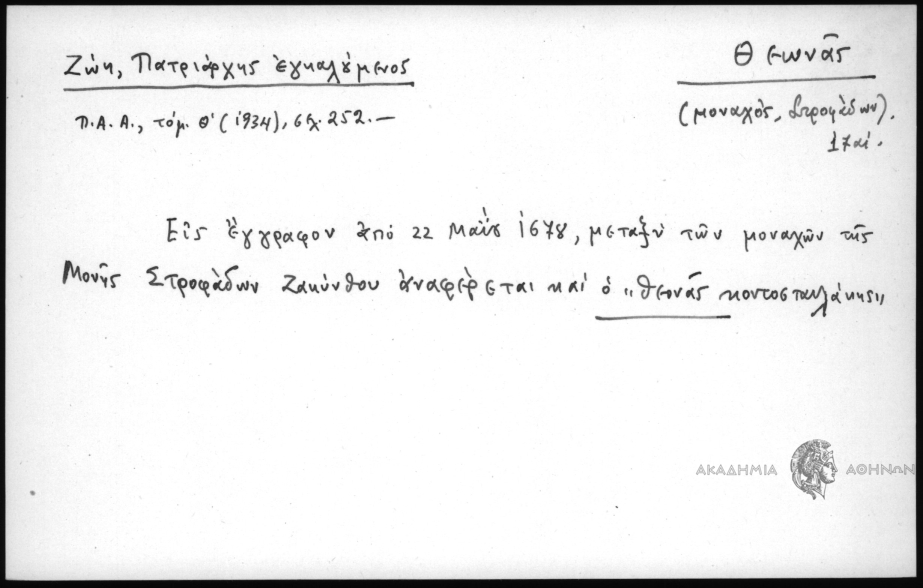 Ζώη, Πατριάρχης ἐγκαλούμενος
Π.Α.Α., τόμ. Θ' (1934), σελ. 252.—
Θεωνᾶς
(μοναχὸς, Στροφάδων).
17αί.
Εἰς ἔγγραφον ἀπό 22 Μαΐου 1678, μεταξὺ τῶν μοναχῶν τῆς
Μονῆς Στροφάδων Ζακύνθου ἀναφέρεται καὶ ὁ „θεονᾶς κοντοσταυλάκης"
ΑΚΑΔΗΜΙΑ ΑΘΗΝΩΝ